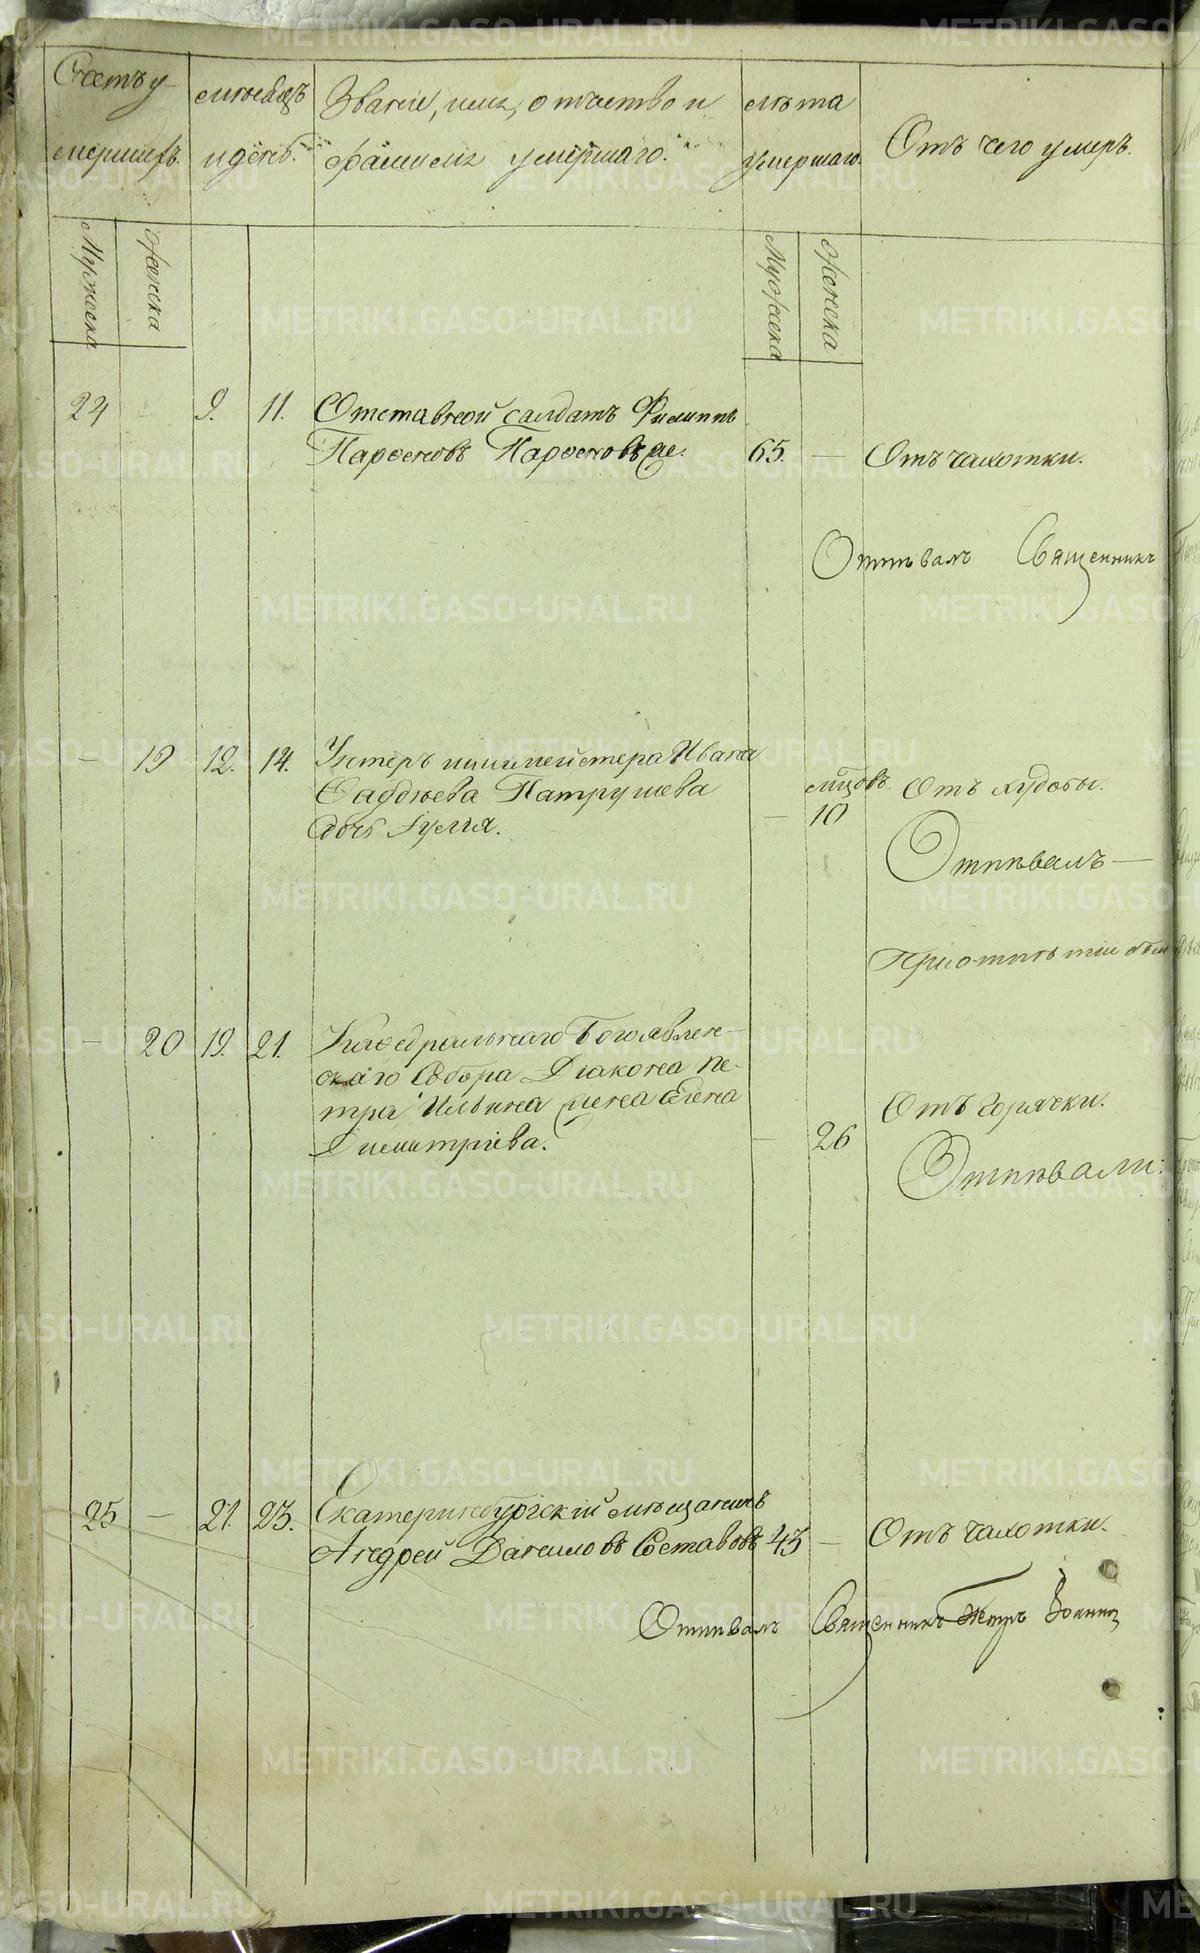 Счетъ у-
мершихъ.
мѣсяцъ
и день.
Званіе, имя, отчество и
фамилія умершаго.
лѣта
умершаго.
Отъ чего умеръ.
Мужеска
Женска
Мужеска
Женска
24 9. 11. Отставной салдатъ Филиппъ
65. — Отъ чахотки.
Отпѣвалъ Священникъ
— 19 12. 14. Унтеръ шихмейстера Ивана
Фаддѣева Патрушева
дочь Іулія.
— мѣцовъ 10 Отъ худобы.
Отпѣвалъ —
При отпѣтіи были
— 20 19. 21. Каѳедральнаго Богоявлен-
скаго Собора Діакона Пе-
тра Ильина жена Елена
Димитріева.
— 26 Отъ горячки.
Отпѣвали:
25 — 21. 23. Екатеринбургскій мѣщанинъ
Андрей Даниловъ 43 — Отъ чахотки.
Отпѣвалъ Священникъ Петръ
METRIKI.GASO-URAL.RU